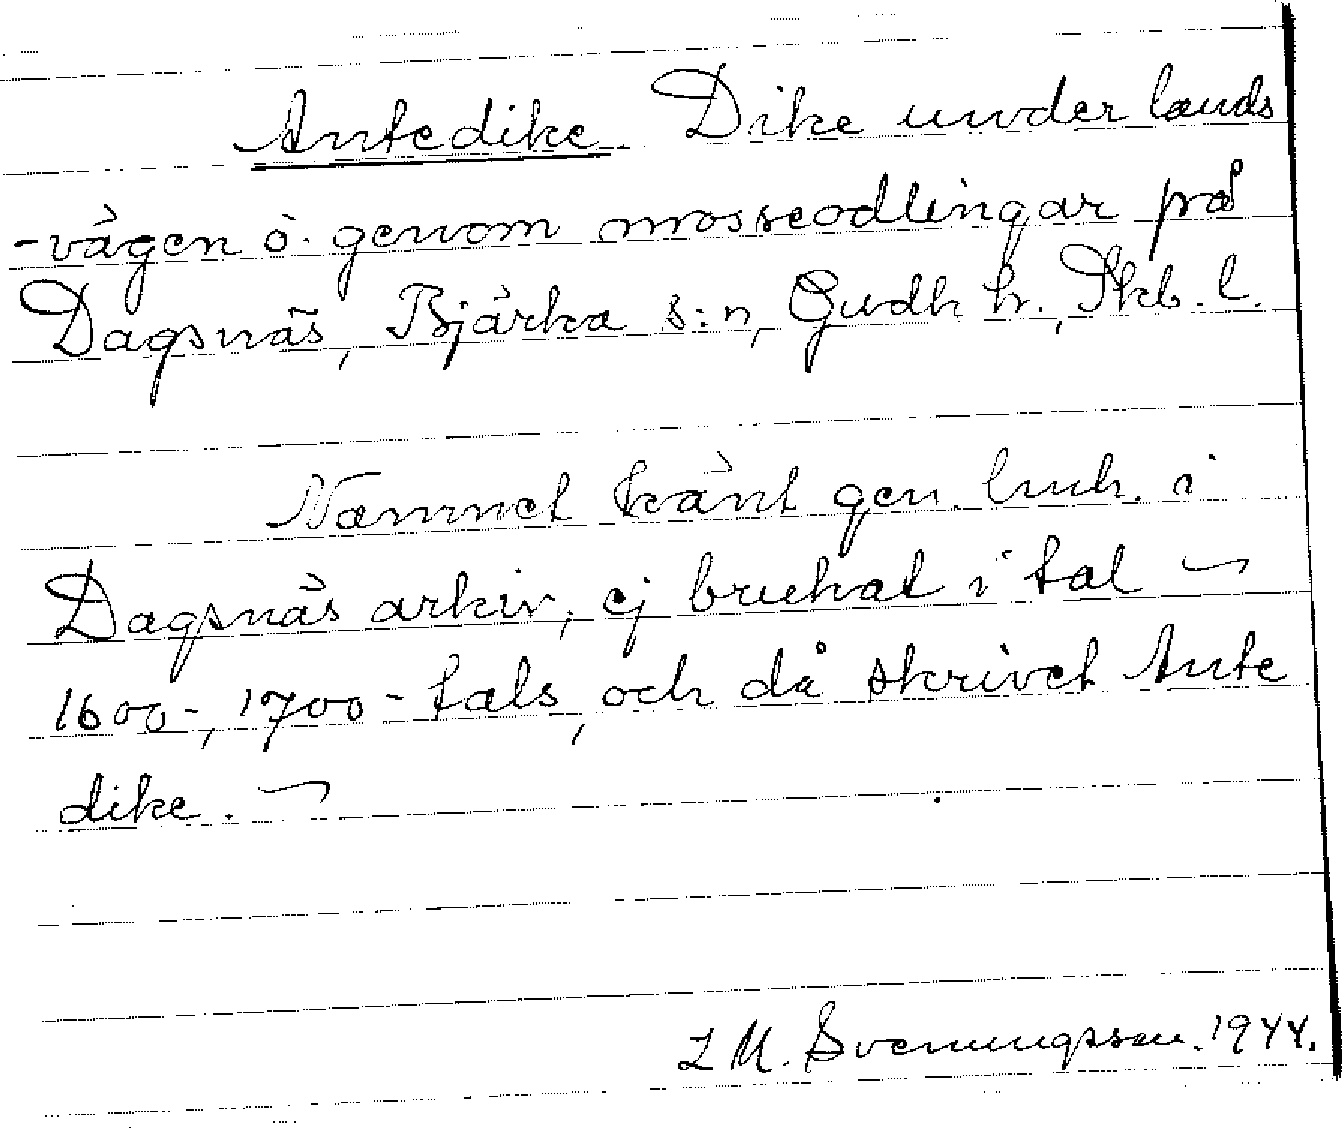 Antedike. Dike under lands
-vägen ö. genom mosseodlingar på
Dagsnäs, Bjärka s:n, Gudh h., Skb. l.
Namnet känt gen. huh. i
Dagsnäs arkiv, ej brukat i tal –
1600-, 1700-tals, och då skrivet Ante
dike. –
L M. Svenungsson. 1944.